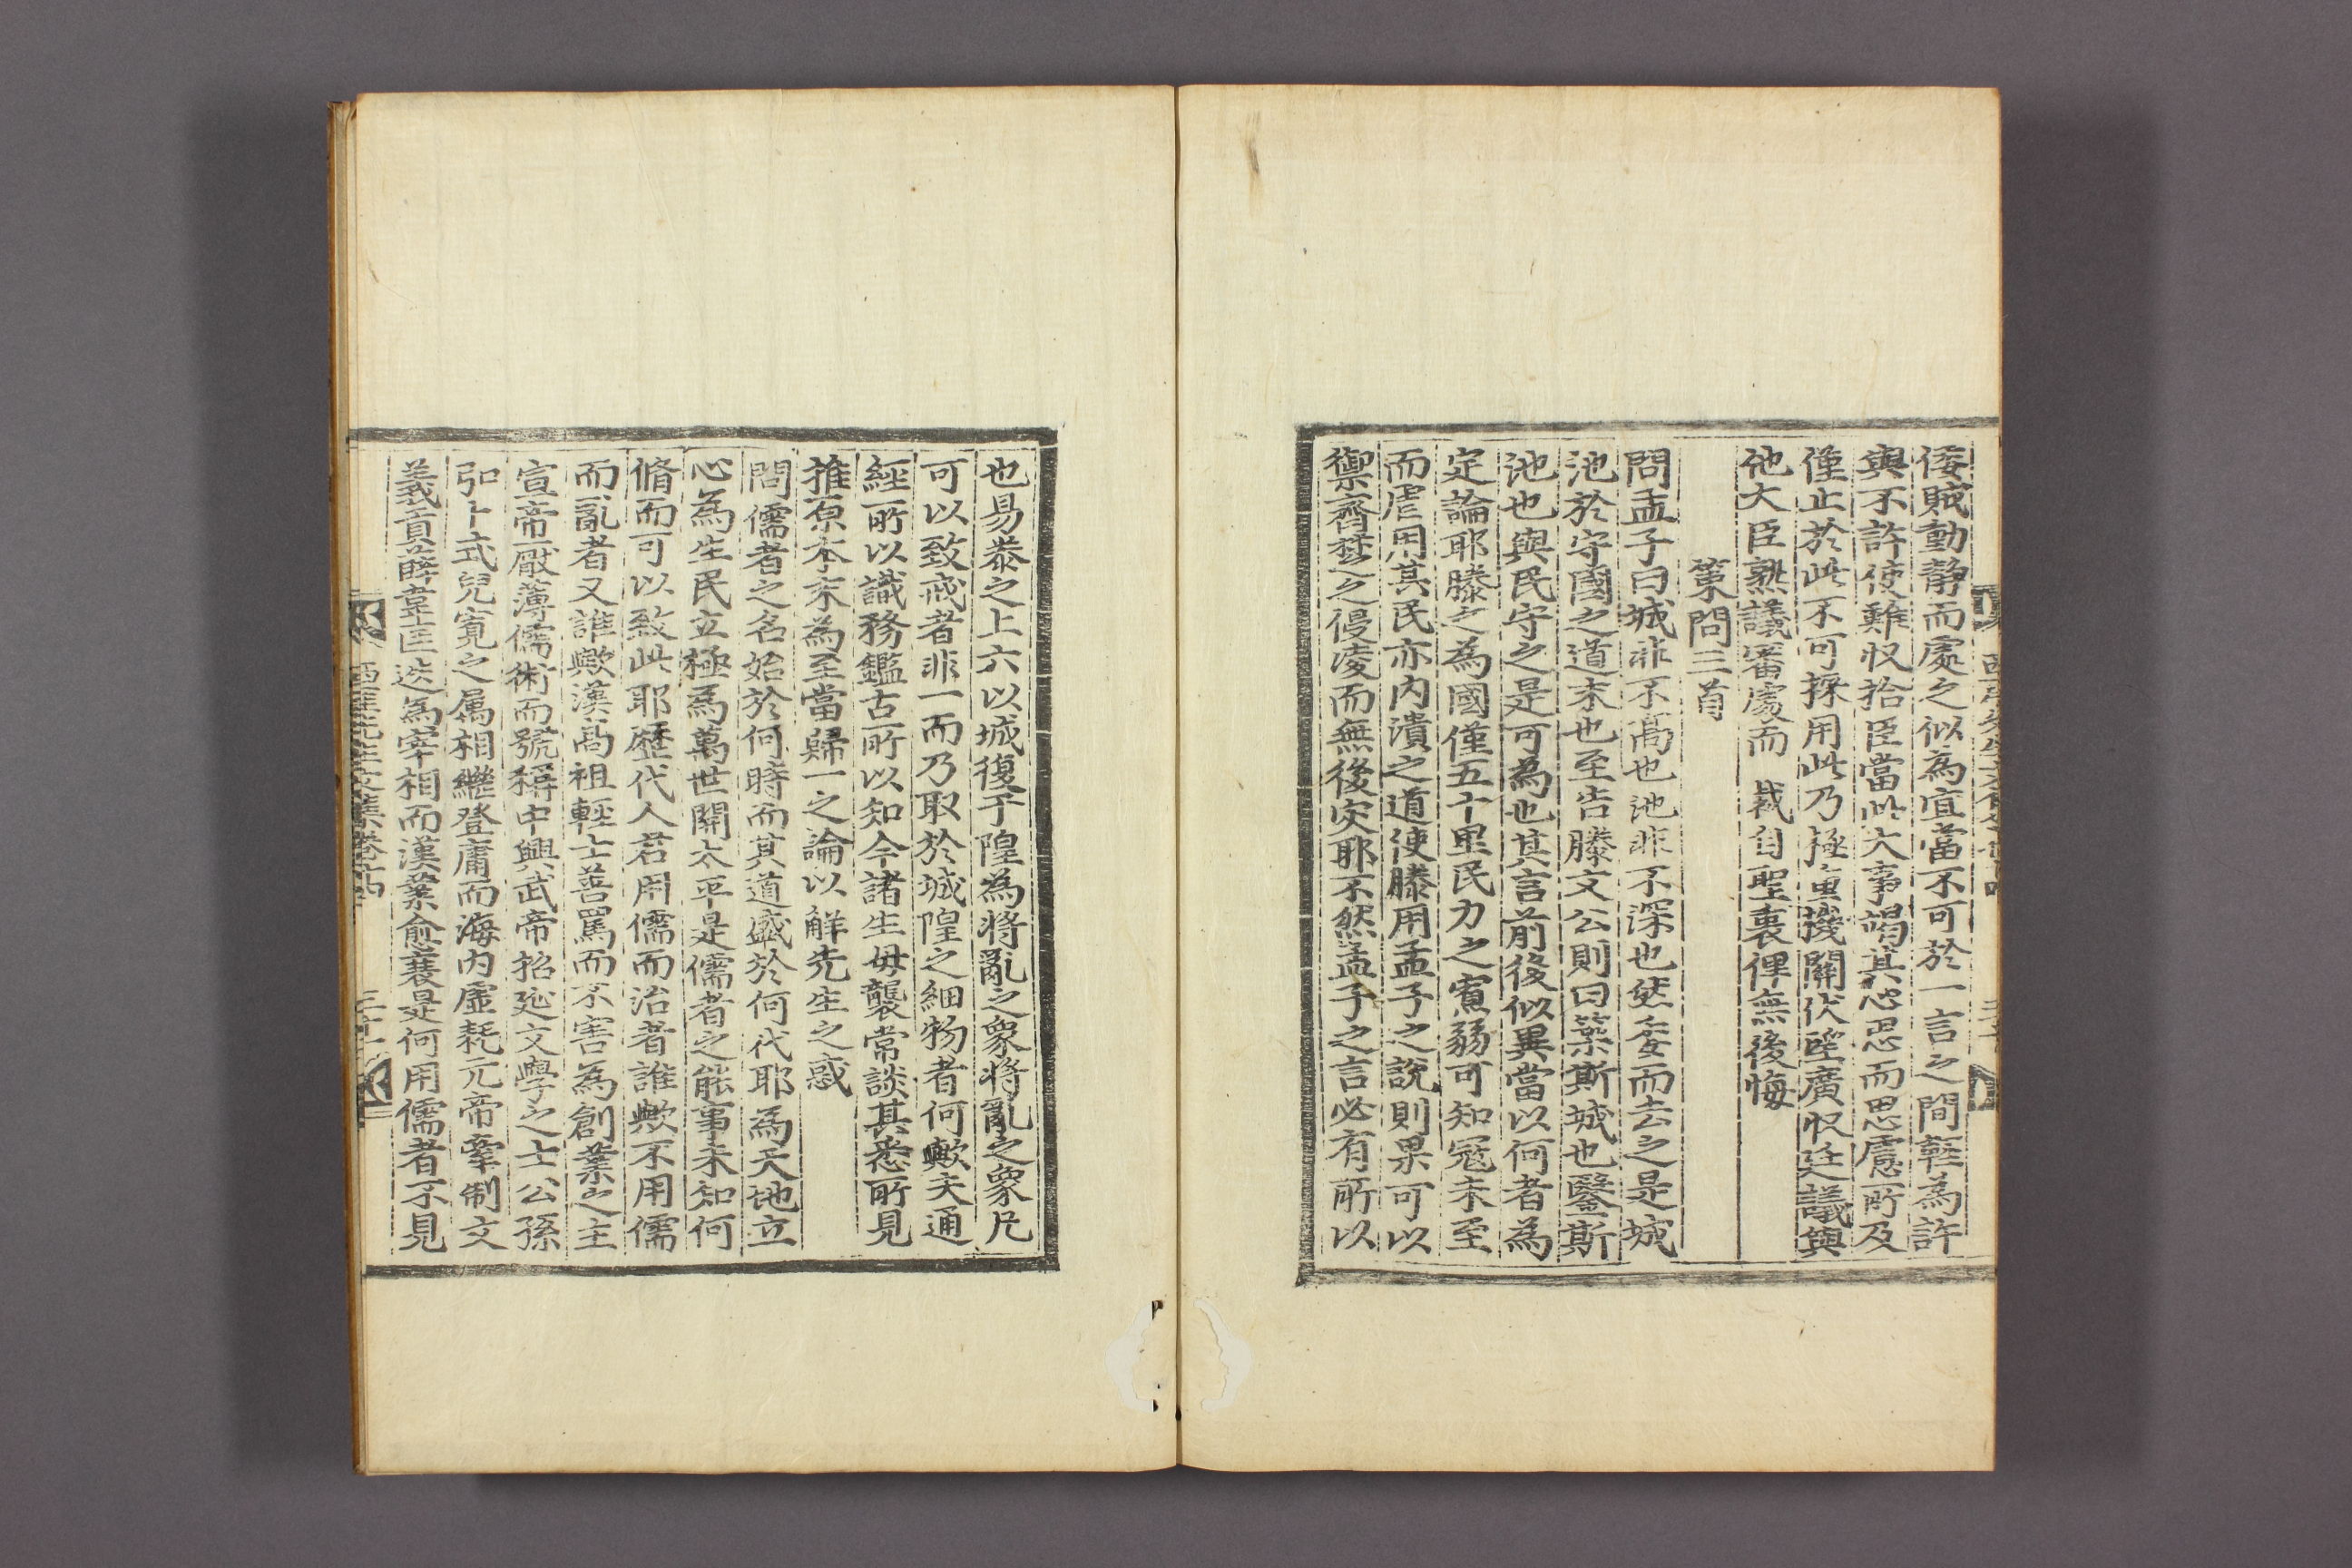 倭賊動静而處之似為宜當不可於一言之間輕為許
與不許使難收拾臣當此大事竭其心思而思慮所及
僅止於此不可採用此乃極重機關伏望廣收廷議與
他大臣熟議審處而 裁自聖衷俾無後悔
策問三首
問孟子曰城非不高也池非不深也然委而去之是城
池於守國之道末也至告滕文公則曰築斯城也鑿斯
池也與民守之是可為也其言前後似異當以何者為
定論耶滕之為國僅五十里民力之寡弱可知冦未至
而虐用其民亦内潰之道使滕用孟子之說則果可以
禦齊楚之侵凌而無後灾耶不然孟子之言必有所以
也易泰之上六以城復于隍為將亂之象將亂之象凡
可以致戒者非一而乃取於城隍之細物者何歟夫通
經所以識務鑑古所以知今諸生毋襲常談其悉所見
推原本末為至當歸一之論以觧先生之惑
問儒者之名始於何時而其道盛於何代耶為天地立
心為生民立極爲萬世開太平是儒者之能事未知何
脩而可以致此耶歷代人君用儒而治者誰歟不用儒
而亂者又誰歟漢高祖輕士善罵而不害為創業之主
宣帝厭薄儒術而號稱中興武帝招延文學之士公孫
弘卜式兒寬之属相繼登庸而海内虛耗元帝牽制文
義貢薛韋匡迭為宰相而漢業愈衰是何用儒者不見
西厓先生文集卷之十四